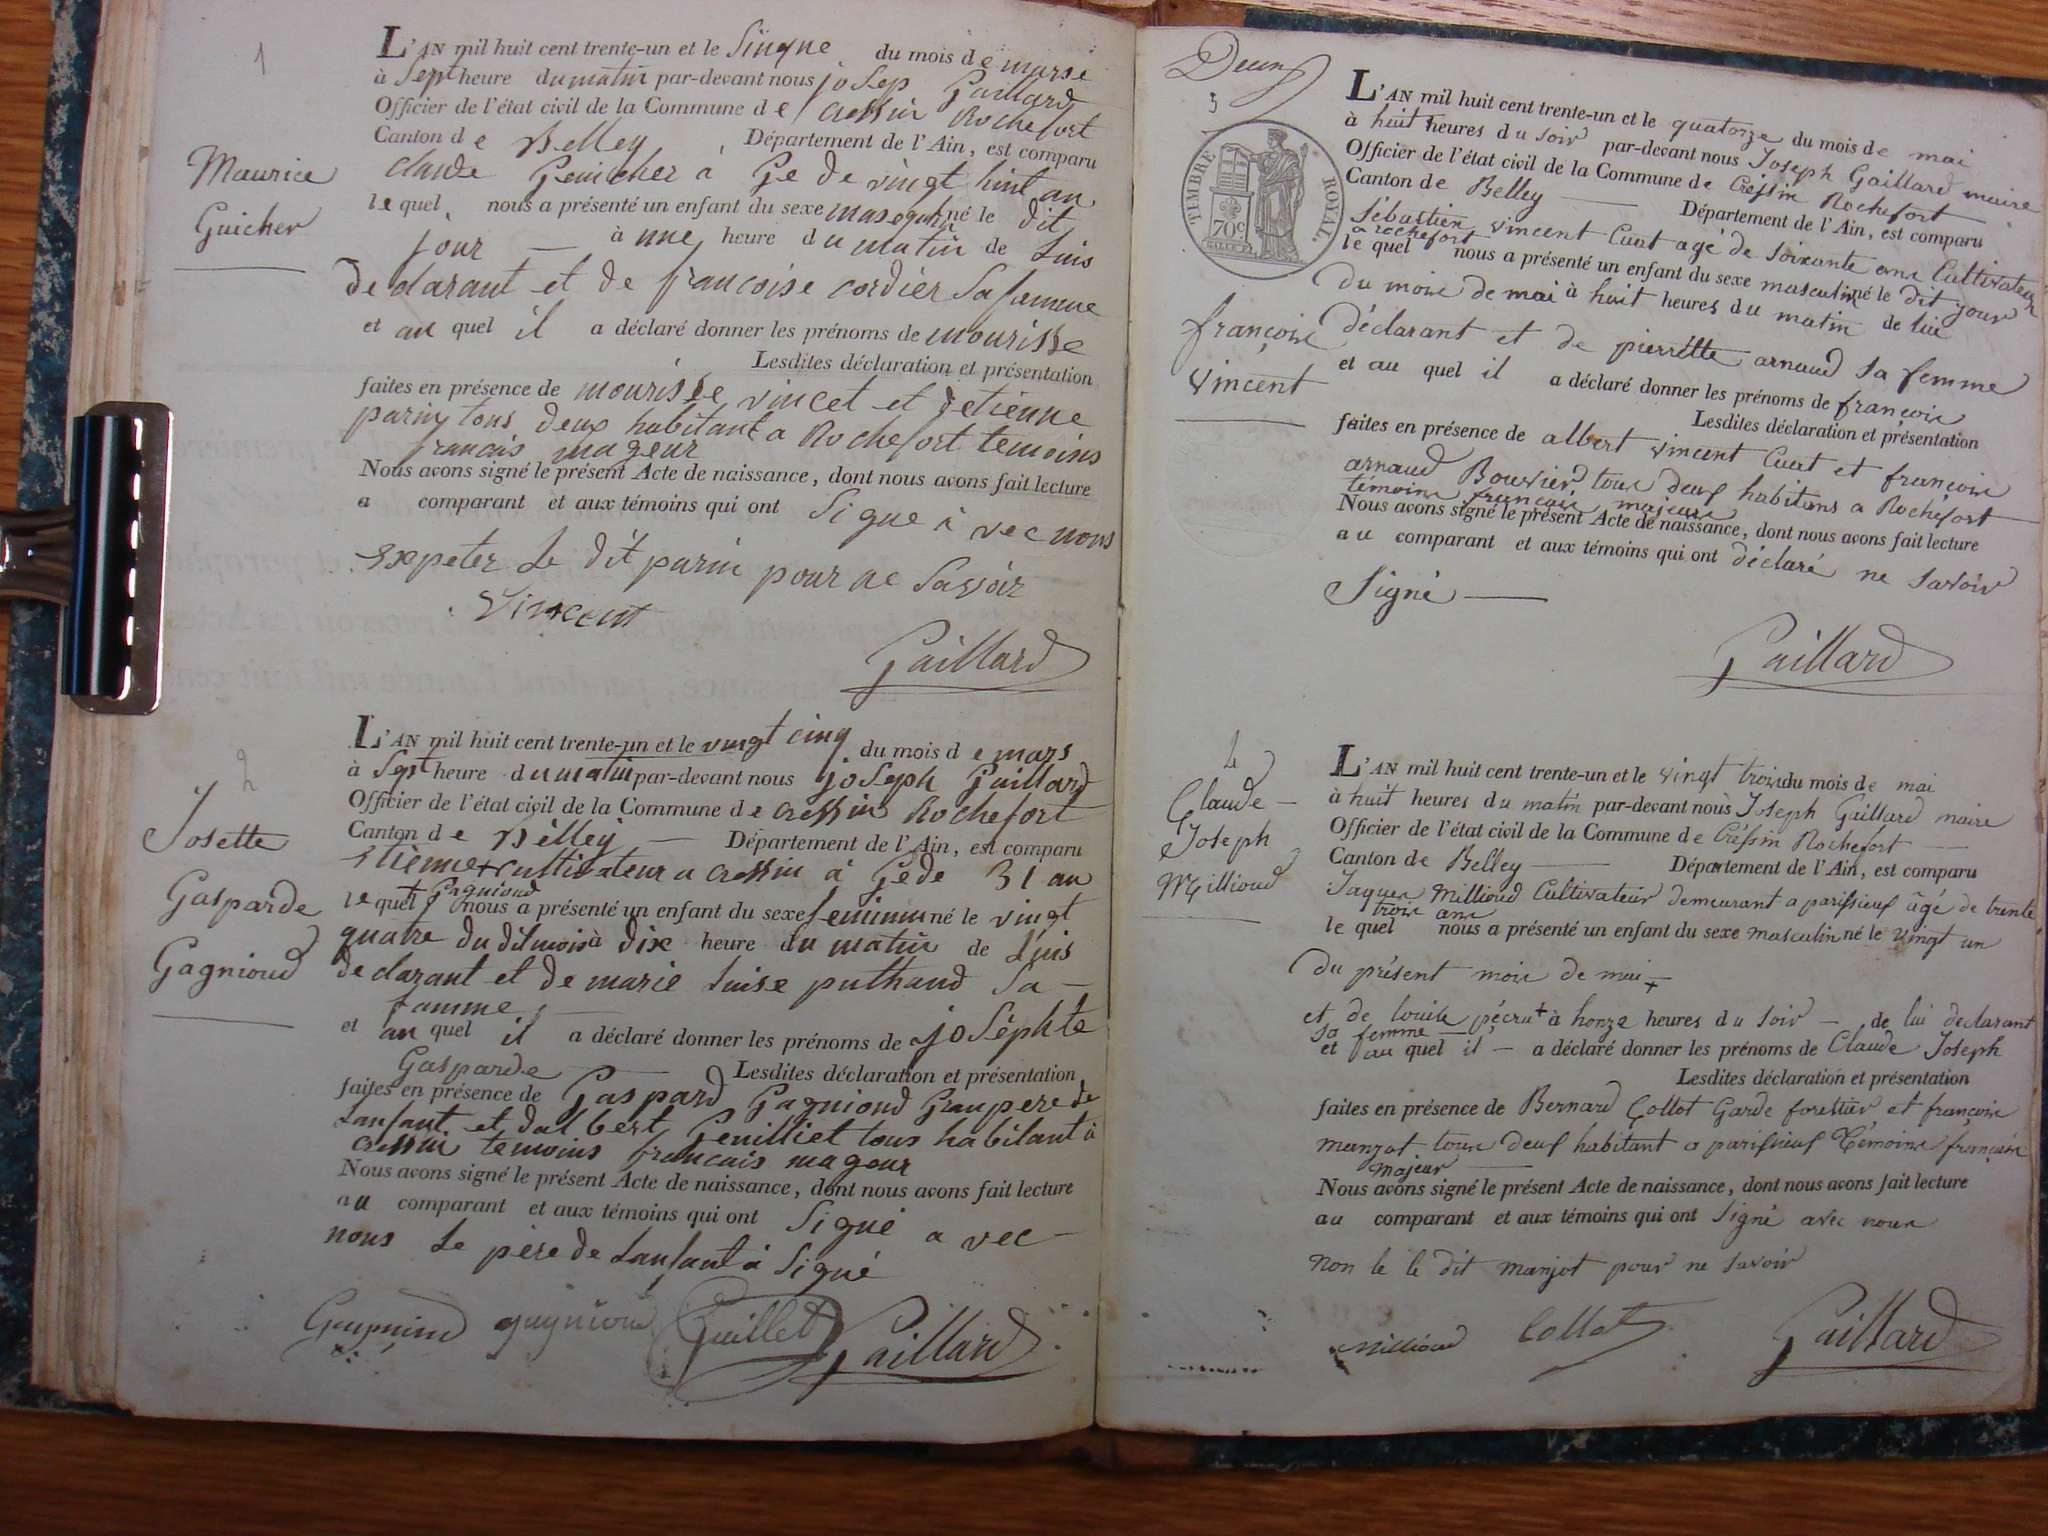 1
L'AN mil huit cent trente-un et le Sinqne du mois de marse
à Sept heure du matin par-devant nous joSep Gaillard
Officier de l'état civil de la Commune de cressin Rochefort
Canton de Belley Département de l'Ain, est comparu
claude Geuicher à Ge de vingt huit an
le quel nous a présenté un enfant du sexe masequlin né le dit
jour — à une heure du matin de Luis
declarant et de francoise cordier Sa famme
et au quel il a déclaré donner les prénoms de mourisse
Lesdites déclaration et présentation
faites en présence de mourisse vincet et detienne
parin tous deux habitant a Rochefort temoins
francais mageur
Nous avons signé le présent Acte de naissance, dont nous avons fait lecture
a comparant et aux témoins qui ont Signe à vec nous
Expeter Le dit parin pour ne Savoir
Vincent
Gaillard
Maurice
Guicher
L'AN mil huit cent trente-un et le vingt cinq du mois de mars
à Sept heure du matin par-devant nous joSeph Gaillard
Officier de l'état civil de la Commune de cressin Rochefort
Canton de Belley — Département de l'Ain, est comparu
Etienne + cultivateur a cressin à Gede 31 an
Gagnioud
le quel nous a présenté un enfant du sexe feminin né le vingt
quatre du dit mois à dix heure du matin de Luis
declarant et de marie Luise puthaud Sa —
famme
et au quel il a déclaré donner les prénoms de joSephte
Gasparde — Lesdites déclaration et présentation
faites en présence de Gaspard Gagnioud Granpere de
Lanfant et dalbert Geuilliet tous habitant à
cressin temoins francais mageur
Nous avons signé le présent Acte de naissance, dont nous avons fait lecture
au comparant et aux témoins qui ont Signé a vec
nous Le père de Lanfant à Signé
gagnioud Guillet Gaillard
2
Josette
Gasparde
Gagnioud
Deux
3
TIMBRE ROYAL.
70c
L'AN mil huit cent trente-un et le quatorze du mois de mai
à huit heures du soir par-devant nous Joseph Gaillard maire
Officier de l'état civil de la Commune de Cressin Rochefort
Canton de Belley — Département de l'Ain, est comparu
Sébastien vincent Cuet agé de soixante ans Cultivateur
a rochefort
le quel nous a présenté un enfant du sexe masculin né le dit jour
du mois de mai à huit heures du matin de lui
déclarant et de pierrette arnaud sa femme
et au quel il a déclaré donner les prénoms de françois
Lesdites déclaration et présentation
faites en présence de albert vincent Cuet et françois
arnaud Bouvier tous deux habitans a Rochefort —
témoins francais majeurs
Nous avons signé le présent Acte de naissance, dont nous avons fait lecture
au comparant et aux témoins qui ont déclaré ne savoir
Signé —
Gaillard
françois
vincent
L'AN mil huit cent trente-un et le vingt trois du mois de mai
à huit heures du matin par-devant nous Joseph Gaillard maire
Officier de l'état civil de la Commune de Cressin Rochefort —
Canton de Belley — Département de l'Ain, est comparu
Jaques Millioud Cultivateur demeurant a parissieux âgé de trente
trois ans
le quel nous a présenté un enfant du sexe masculin né le vingt un
du présent mois de mai +
et de louise pécru + à honze heures du soir — de lui declarant
sa femme —
et au quel il — a déclaré donner les prénoms de Claude Joseph
Lesdites déclaration et présentation
faites en présence de Bernard Collot Garde forestier et françois
manjot tous deux habitant a parissieux témoins français
majeur —
Nous avons signé le présent Acte de naissance, dont nous avons fait lecture
au comparant et aux témoins qui ont Signé avec nous
non le le dit manjot pour ne savoir
Millioud Collot Gaillard
4
Claude —
Joseph
Millioud